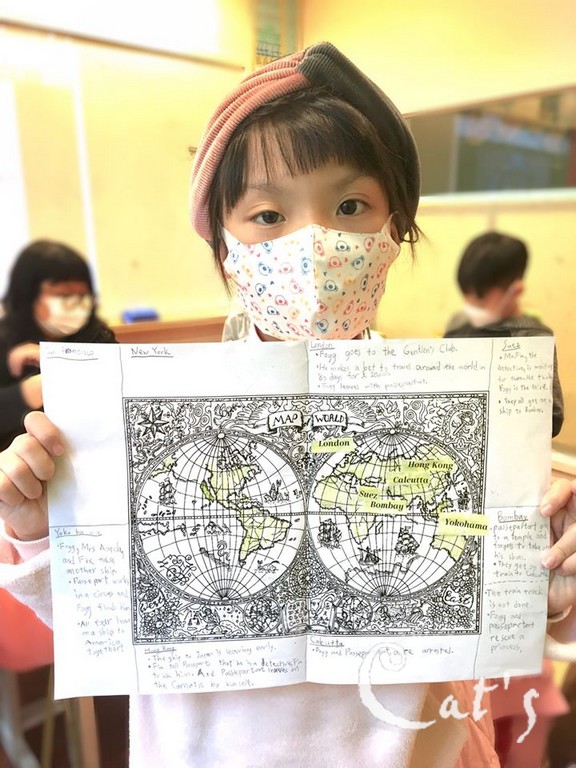 New York
London
• Fogg goes to the Gentlen's Club.
• He makes a bet to travel around the world in
80 days for
• Fogg leaves with passepartout.
Suez
• Mr. Fix, the
detective, is waiting
for them.
Fogg is the
• They all get on a
ship to Bombay.
MAP
WORLD
London
Hong Kong
Calcutta
Suez
Bombay
Yokohama
Yoko ha ma
• Fogg, Mrs Aouda,
and Fix take
another ship.
• Passport works
in a circus and
Fogg finds him
• All four
on a ship to
America,
together!
Bombay
• passepartout go
to a temple, and
forgets to take off
his shoes.
• They get on
train to Calcutta
• The train track
is not done.
• Fogg and
passepartout
rescue a
princess.
Hong Kong
• The ship to Japan is leaving early.
• Fix tell Passport that he is a detective. Fix
trick him. And Passepartout leaves on
the Carnatic by himself.
Calcutta
• Fogg and Passepartout are arrested.
Cat's